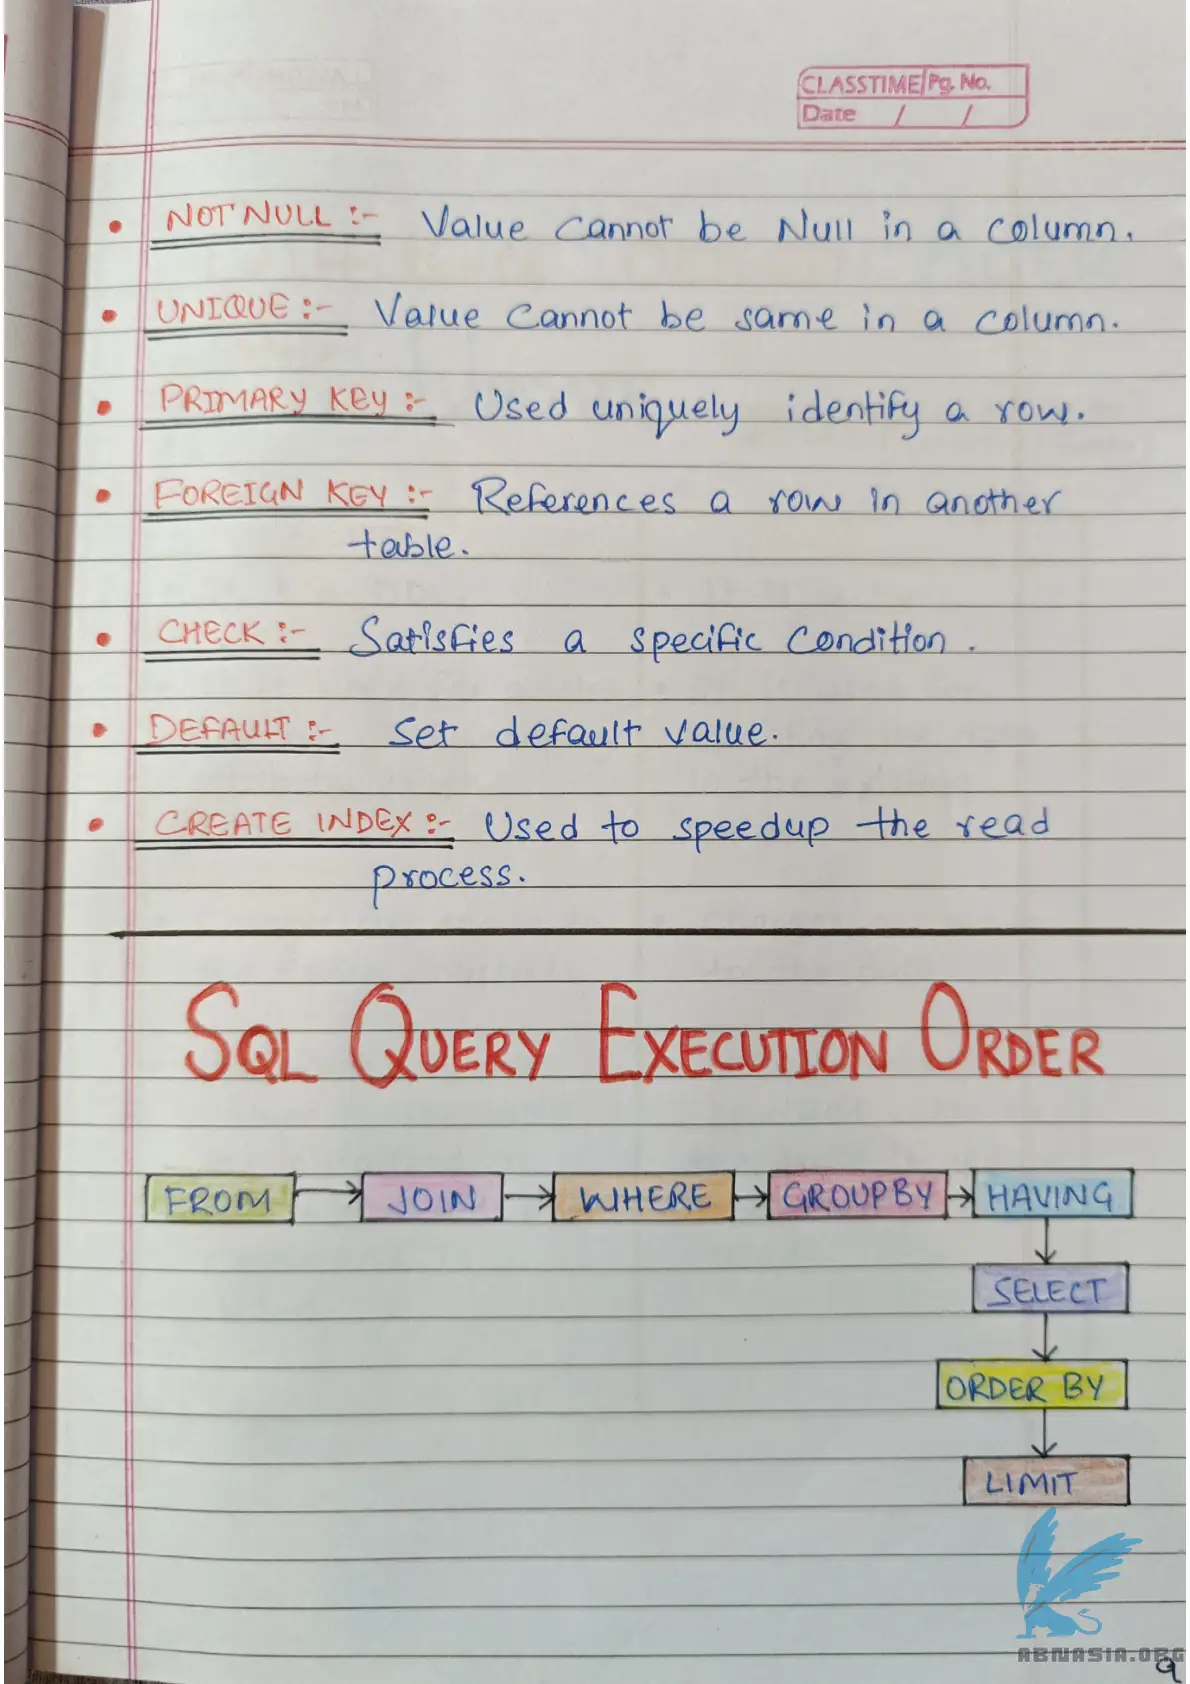 CLASSTIME Pg. No.
Date / /
• NOT NULL :- Value cannot be Null in a column.
• UNIQUE :- Value cannot be same in a column.
• PRIMARY KEY :- Used uniquely identify a row.
• FOREIGN KEY :- References a row in another
table.
• CHECK :- Satisfies a specific condition.
• DEFAULT :- Set default value.
• CREATE INDEX :- Used to speedup the read
process.
SQL QUERY EXECUTION ORDER
FROM JOIN WHERE GROUP BY HAVING
SELECT
ORDER BY
LIMIT
ABNASIA.ORG
9